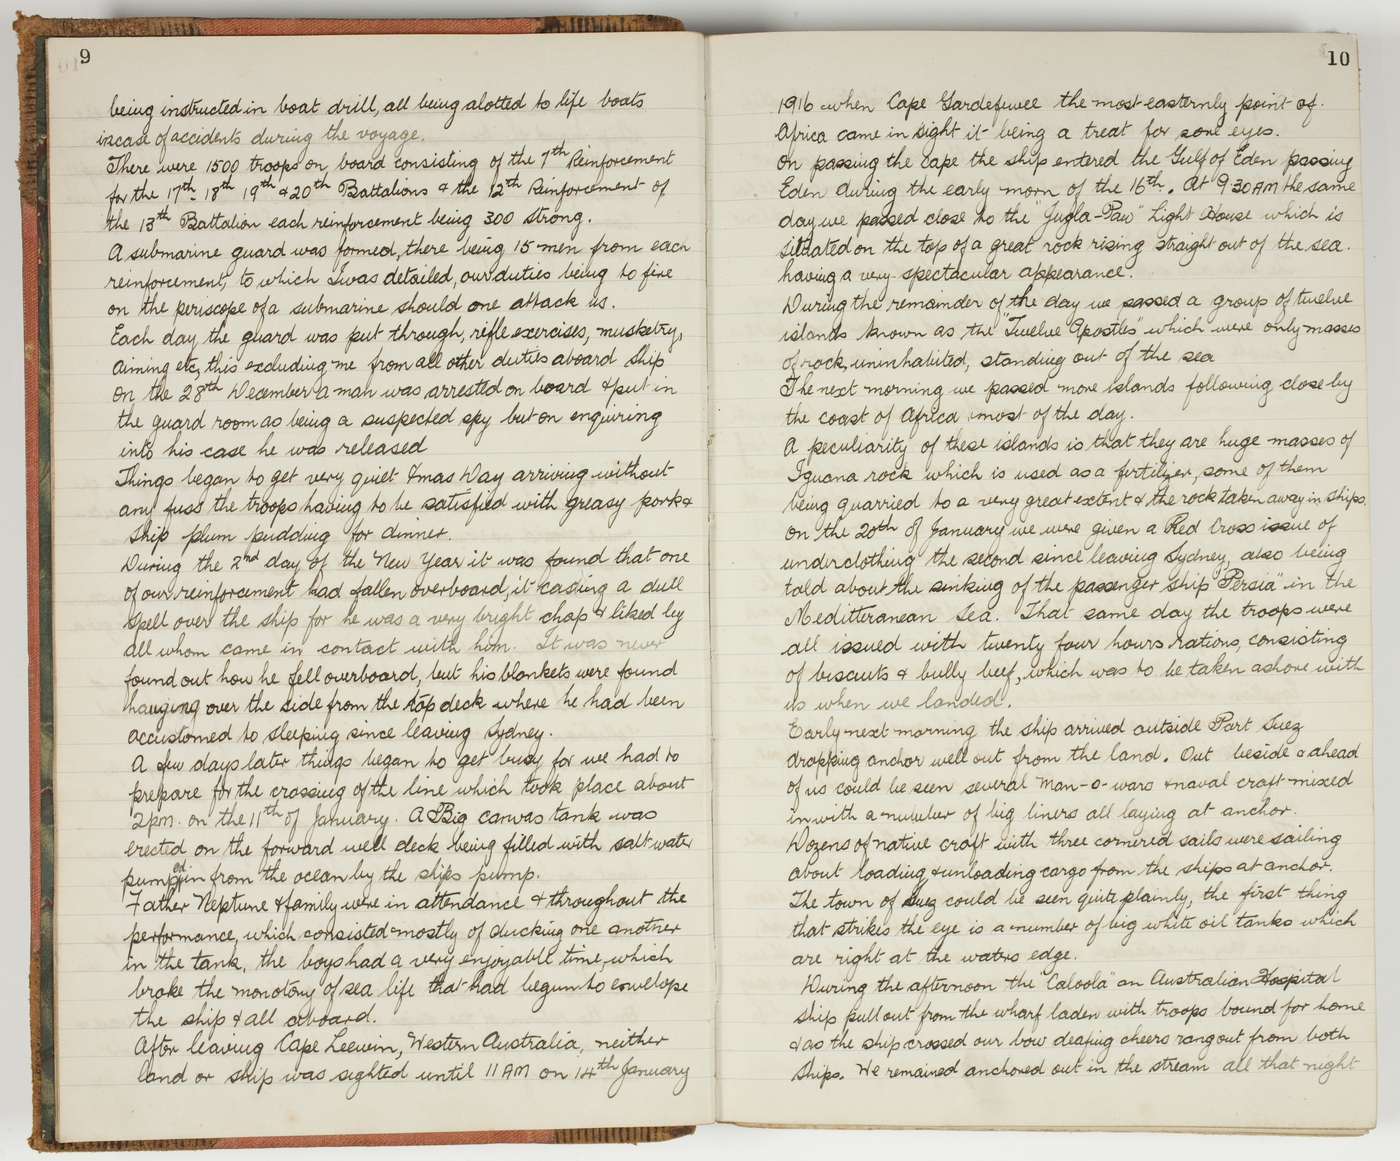 9
being instructed in boat drill, all being alotted to life boats
incase of accidents during the voyage.
There were 1500 troops on board consisting of the 7th Reinforcement
for the 17th 18th 19th & 20th Battalions & the 12th Reinforcement of
the 13th Battalion each reinforcement being 300 strong.
A submarine guard was formed, there being 15 men from each
reinforcement, to which I was detailed, our duties being to fire
on the periscope of a submarine should one attack us.
Each day, the guard was put through, rifle exercises, musketry,
aiming etc, this excluding me from all other duties aboard ship
On the 28th December a man was arrested on board & put in
the guard room as being a suspected spy but on enquiring
into his case he was released
Things began to get very quiet Xmas Day arriving without
any fuss the troops having to be satisfied with greasy pork &
ship plum pudding for dinner.
During the 2nd day of the New Year it was found that one
of our reinforcement had fallen overboard, it casting a dull
spell over the ship for he was a very bright chap & liked by
all whom came in contact with him. It was never
found out how he fell overboard, but his blankets were found
hanging over the side from the top deck where he had been
accustomed to sleeping since leaving Sydney.
A few days later things began to get busy for we had to
prepare for the crossing of the line which took place about
2 pm. on the 11th of January. A Big canvas tank was
erected on the forward well deck being filled with salt water
pumped in from the ocean by the ships pump.
Father Neptune & family were in attendance & throughout the
performance, which consisted mostly of ducking one another
in the tank, the boys had a very enjoyable time, which
broke the monotony of sea life that had begun to envelope
the ship & all aboard.
After leaving Cape Leewin, Western Australia, neither
land or ship was sighted until 11 AM on 14th January
10
1916 when Cape Gardefuwee the most easternly point of
Africa came in sight it being a treat for sore eyes.
On passing the cape the ship entered the Gulf of Eden passing
Eden during the early morn of the 16th. At 9 30 AM the same
day we passed close to the "Jugla-Paw" Light House which is
situated on the top of a great rock rising straight out of the sea.
having a very spectacular appearance.
During the remainder of the day we passed a group of twelve
islands known as the "Twelve Apostles" which were only masses
of rock, uninhabited, standing out of the sea
The next morning we passed more islands following close by
the coast of Africa most of the day.
A peculiarity of these islands is that they are huge masses of
Iguana rock which is used as a fertilizer, some of them
being quarried to a very great extent & the rock taken away in ships.
On the 20th of January we were given a Red Cross issue of
underclothing the second since leaving Sydney, also being
told about the sinking of the passenger ship "Persia" in the
Meditteranean Sea. That same day the troops were
all issued with twenty four hours rations, consisting
of biscuits & bully beef, which was to be taken ashore with
us when we landed.
Early next morning the ship arrived outside Port Suez
dropping anchor well out from the land. Out beside & ahead
of us could be seen several man-o-wars & naval craft mixed
in with a number of big liners all laying at anchor.
Dozens of native craft with three cornered sails were sailing
about loading & unloading cargo from the ships at anchor.
The town of Suez could be seen quite plainly, the first thing
that strikes the eye is a number of big white oil tanks which
are right at the waters edge.
During the afternoon the "Caloola" an Australian Hospital
ship pull out from the wharf laden with troops bound for home
& as the ship crossed our bow deafing cheers rang out from both
ships. We remained anchored out in the stream all that night